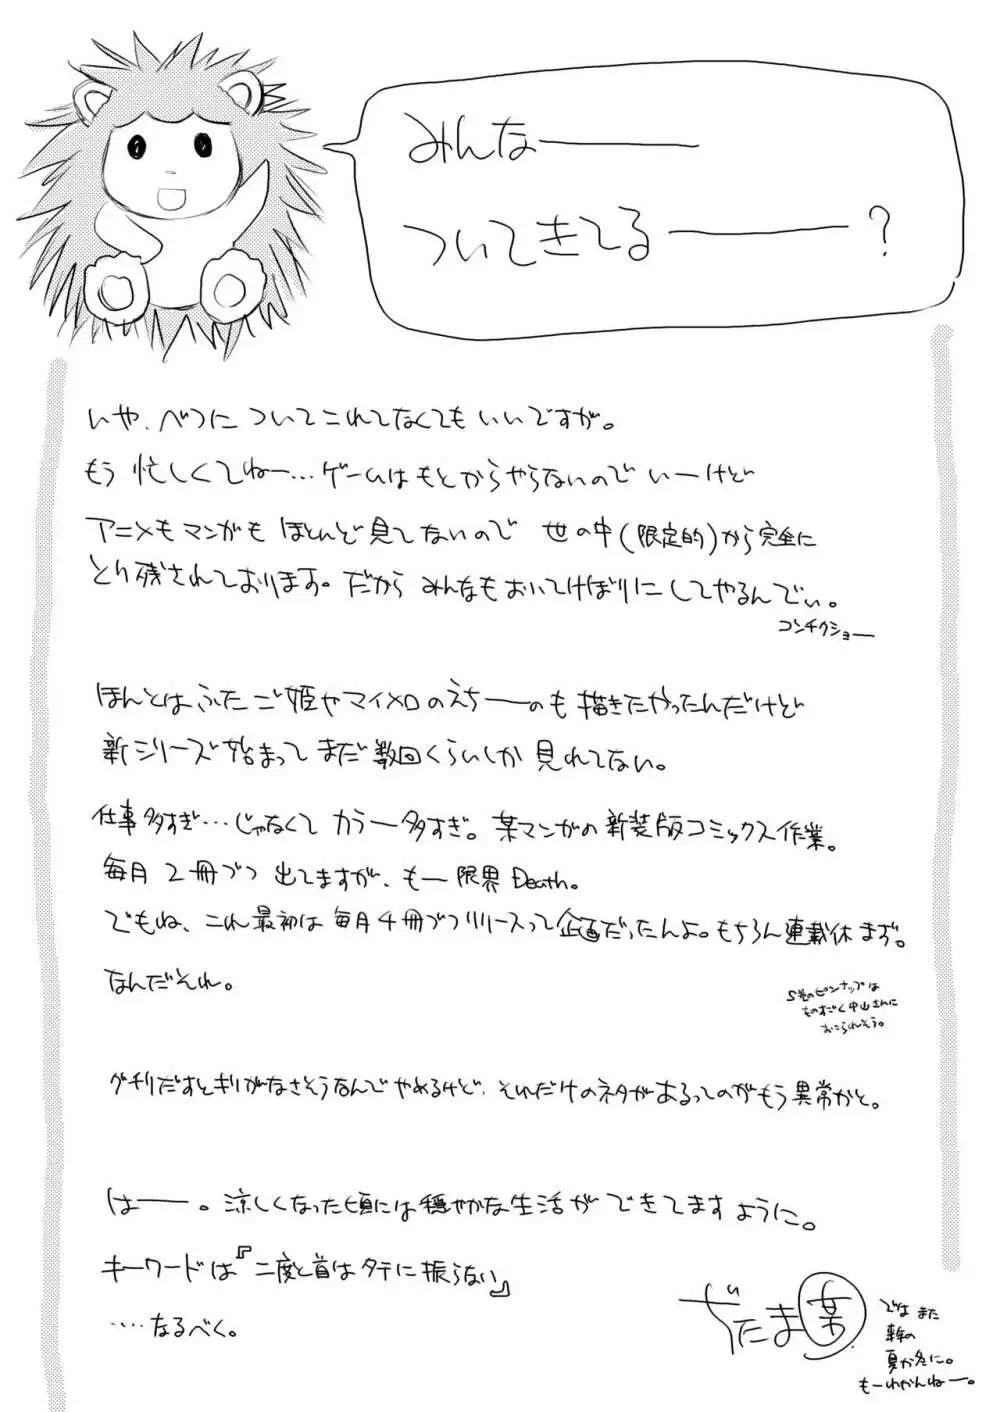 みんなーーー
ついてきてるーーー?
いや、べつに ついてこれてなくても いいですが。
もう 忙しくてねー…ゲームはもとからやらないので いーけど
アニメもマンガも ほとんど見てないので 世の中(限定的)から完全に
とり残されております。だから みんなもおいてけぼりにしてやるんでぃ。
コンチクショー
ほんとはふたご姫やマイメロのえちーーのも描きたやったんだけど
新シリーズ始まって まだ数回くらいしか 見れてない。
仕事多すぎ…じゃなくて カラー多すぎ。某マンガの新装版コミックス作業。
毎月 2冊づつ 出てますが、もー限界Death。
でもね、これ最初は毎月4冊づつリリースって企画だったんよ。もちろん連載休まず。
なんだそれ。
5巻のピンナップは
ものすごく中山さんに
おこられそう。
グチりだすとキリがなさそうなんでやめるけど、それだけのネタがあるってのがもう異常かと。
はーー。涼しくなった頃には穏やかな生活が できてますように。
キーワードは『二度と首はタテに振らない』
‥‥なるべく。
ぢたま某
では また
来年の
夏か冬に。
もーわかんねー。